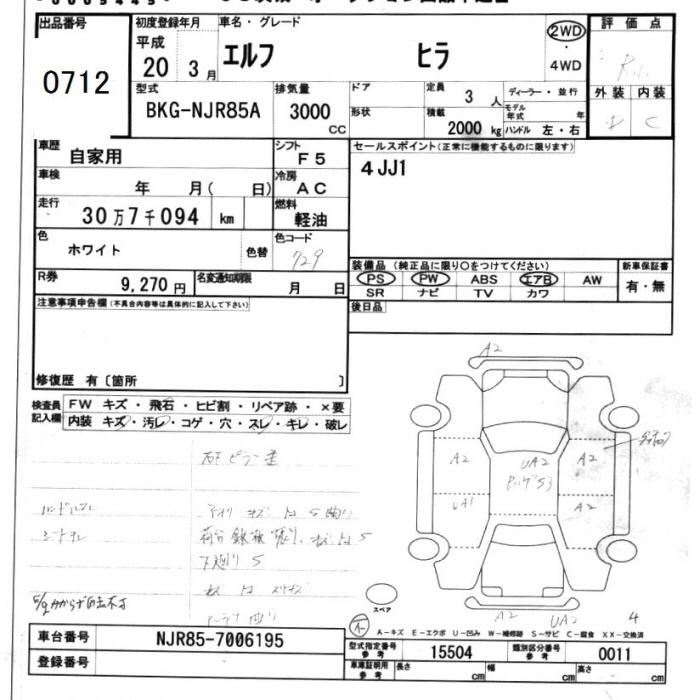 出品番号
0712
初度登録年月
平成
20 3月
車名・グレード
エルフ ヒラ
2WD
・
4WD
評価点
R.1.
外装 内装
D C
型式
BKG-NJR85A
排気量
3000
CC
ドア
形状
定員
3 人
積載
2000 kg
ディーラー・並行
モデル年式 年
ハンドル 左・右
車歴
自家用
シフト
F5
セールスポイント(正常に機能するものに限ります)
4JJ1
車検
年 月( 日)
冷房
AC
走行
30万7千094 km
燃料
軽油
色
ホワイト
色替
色コード
729
装備品 (純正品に限り○をつけてください)
PS PW ABS エアB AW
SR ナビ TV カワ
新車保証書
有・無
R券
9,270円
名変通知期限
月 日
後日品
注意事項申告欄(不具合内容等は具体的に記入して下さい)
修復歴 有〔箇所 〕
検査員
記入欄
FW キズ・飛石・ヒビ割・リペア跡・×要
内装 キズ・汚レ・コゲ・穴・スレ・キレ・破レ
A2
A2
UA2
A2
UA1
A2
下廻りS
スペア
A2
UA2
4
A-キズ E-エクボ U-凹み W-補修跡 S-サビ C-腐食 XX-交換済
車台番号
NJR85-7006195
型式指定番号
参考
15504
類別区分番号
参考
0011
登録番号
車庫証明用
参考
長さ cm
幅 cm
高さ cm